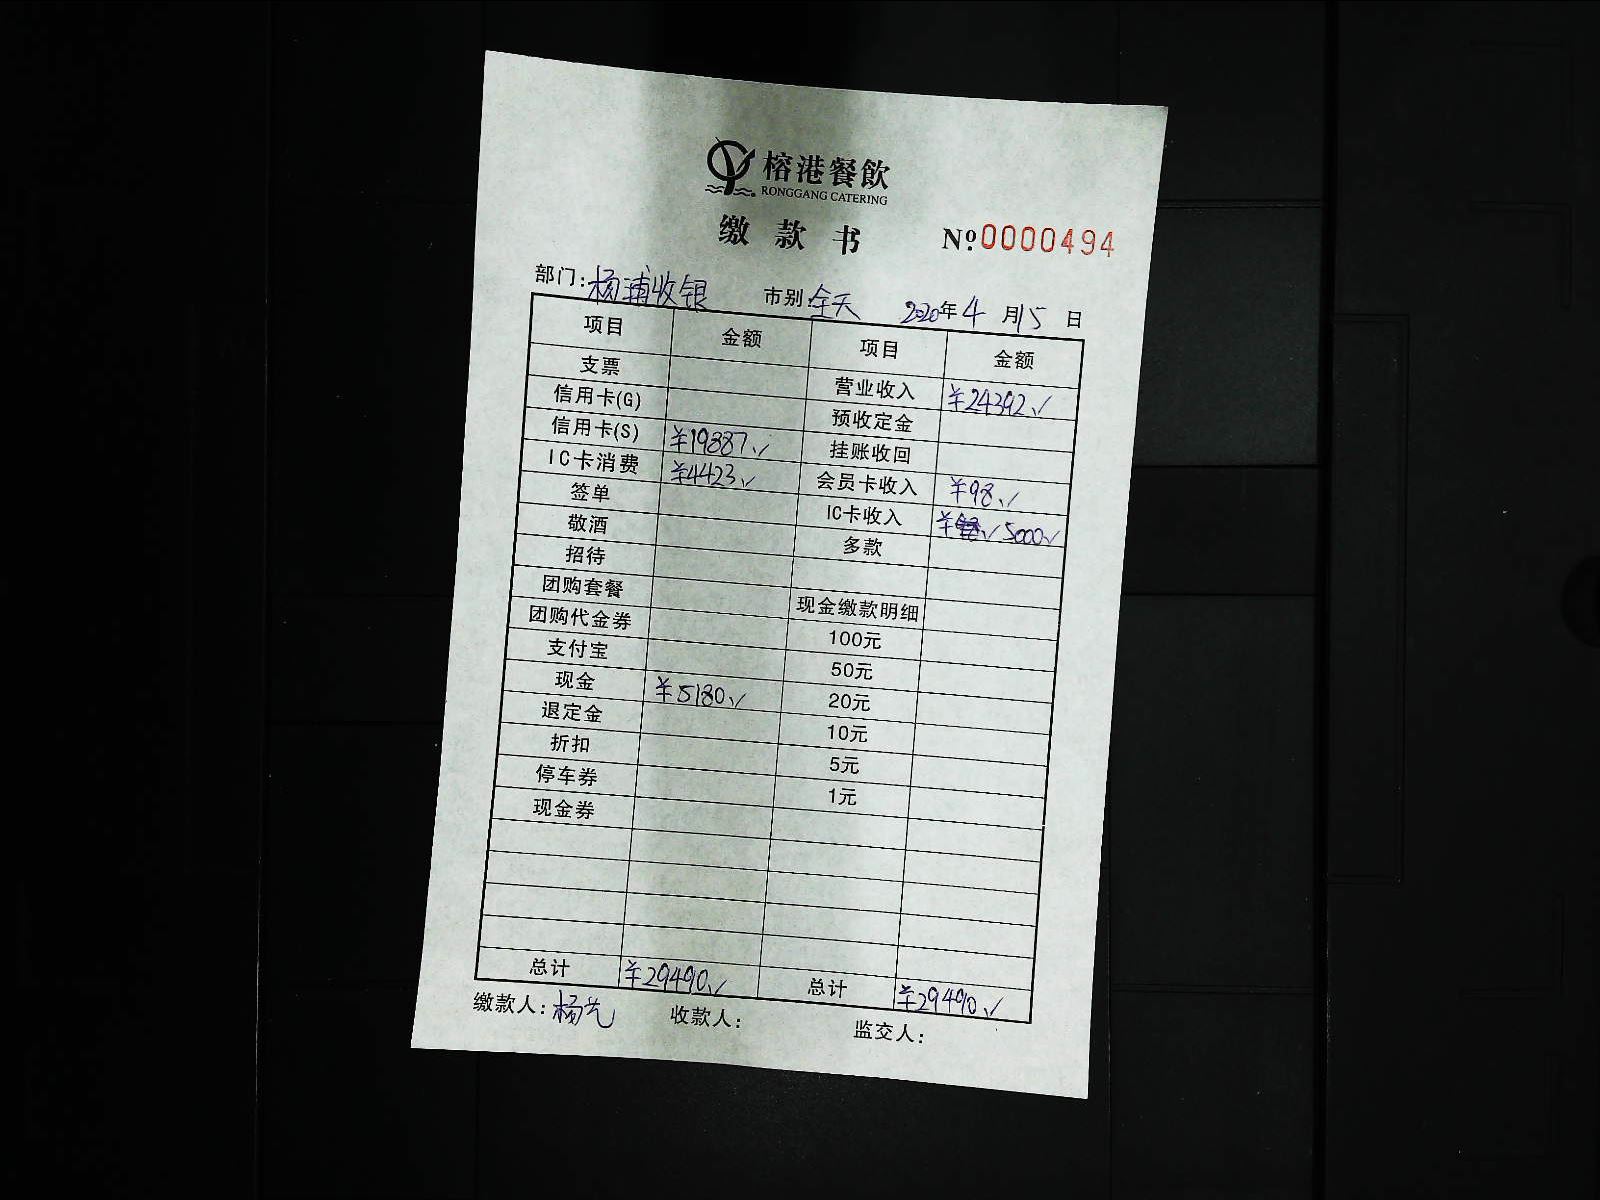 榕港餐飲
RONGGANG CATERING
缴款书 Nº0000494
部门:杨埔收银 市别:全天 2020年4月15日
项目 金额 项目 金额
支票 营业收入 ¥24392
信用卡(G) 预收定金
信用卡(S) ¥19887 挂账收回
IC卡消费 ¥4423 会员卡收入 ¥98
签单 IC卡收入 ¥ 5000
敬酒 多款
招待
团购套餐 现金缴款明细
团购代金券 100元
支付宝 50元
现金 ¥5180 20元
退定金 10元
折扣 5元
停车券 1元
现金券
总计 ¥29490 总计 ¥29490
缴款人:杨 收款人: 监交人: